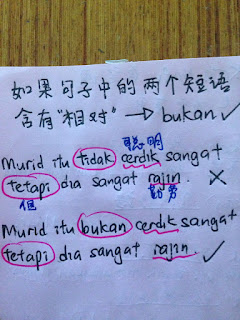 如果句子中的两个短语
含有"相对" → bukan ✓
聪明
Murid itu tidak cerdik sangat
tetapi dia sangat rajin. ✗
但 勤劳
Murid itu bukan cerdik sangat
tetapi dia sangat rajin. ✓